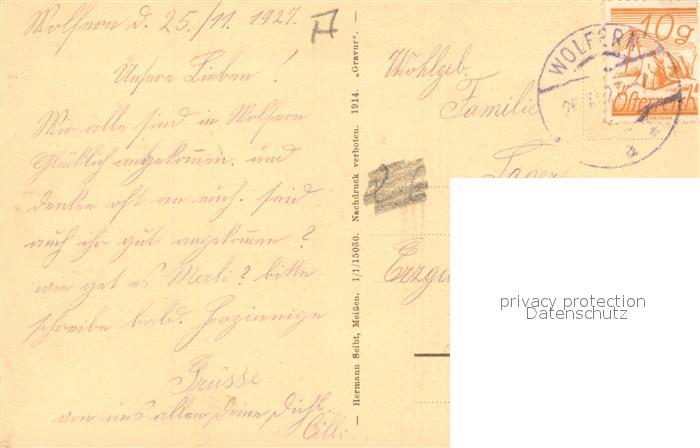 Wolfern d. 25./11. 1927.
Unsere Lieben!
Wir alle sind in Wolfern
Glücklich angekommen. und
denken oft an euch. seid
auch ihr gut angekommen?
wie get es Merli? bitte
schreibe bald. Herzinnige
Grüsse
von uns allen deine
Cilli
— Hermann Seibt, Meißen. 1/1/15030. Nachdruck verboten. 1914. „Gravur“. —
Wohlgeb.
Familie
Erzge
WOLFERN
a
10g
Österreich
24
privacy protection
Datenschutz